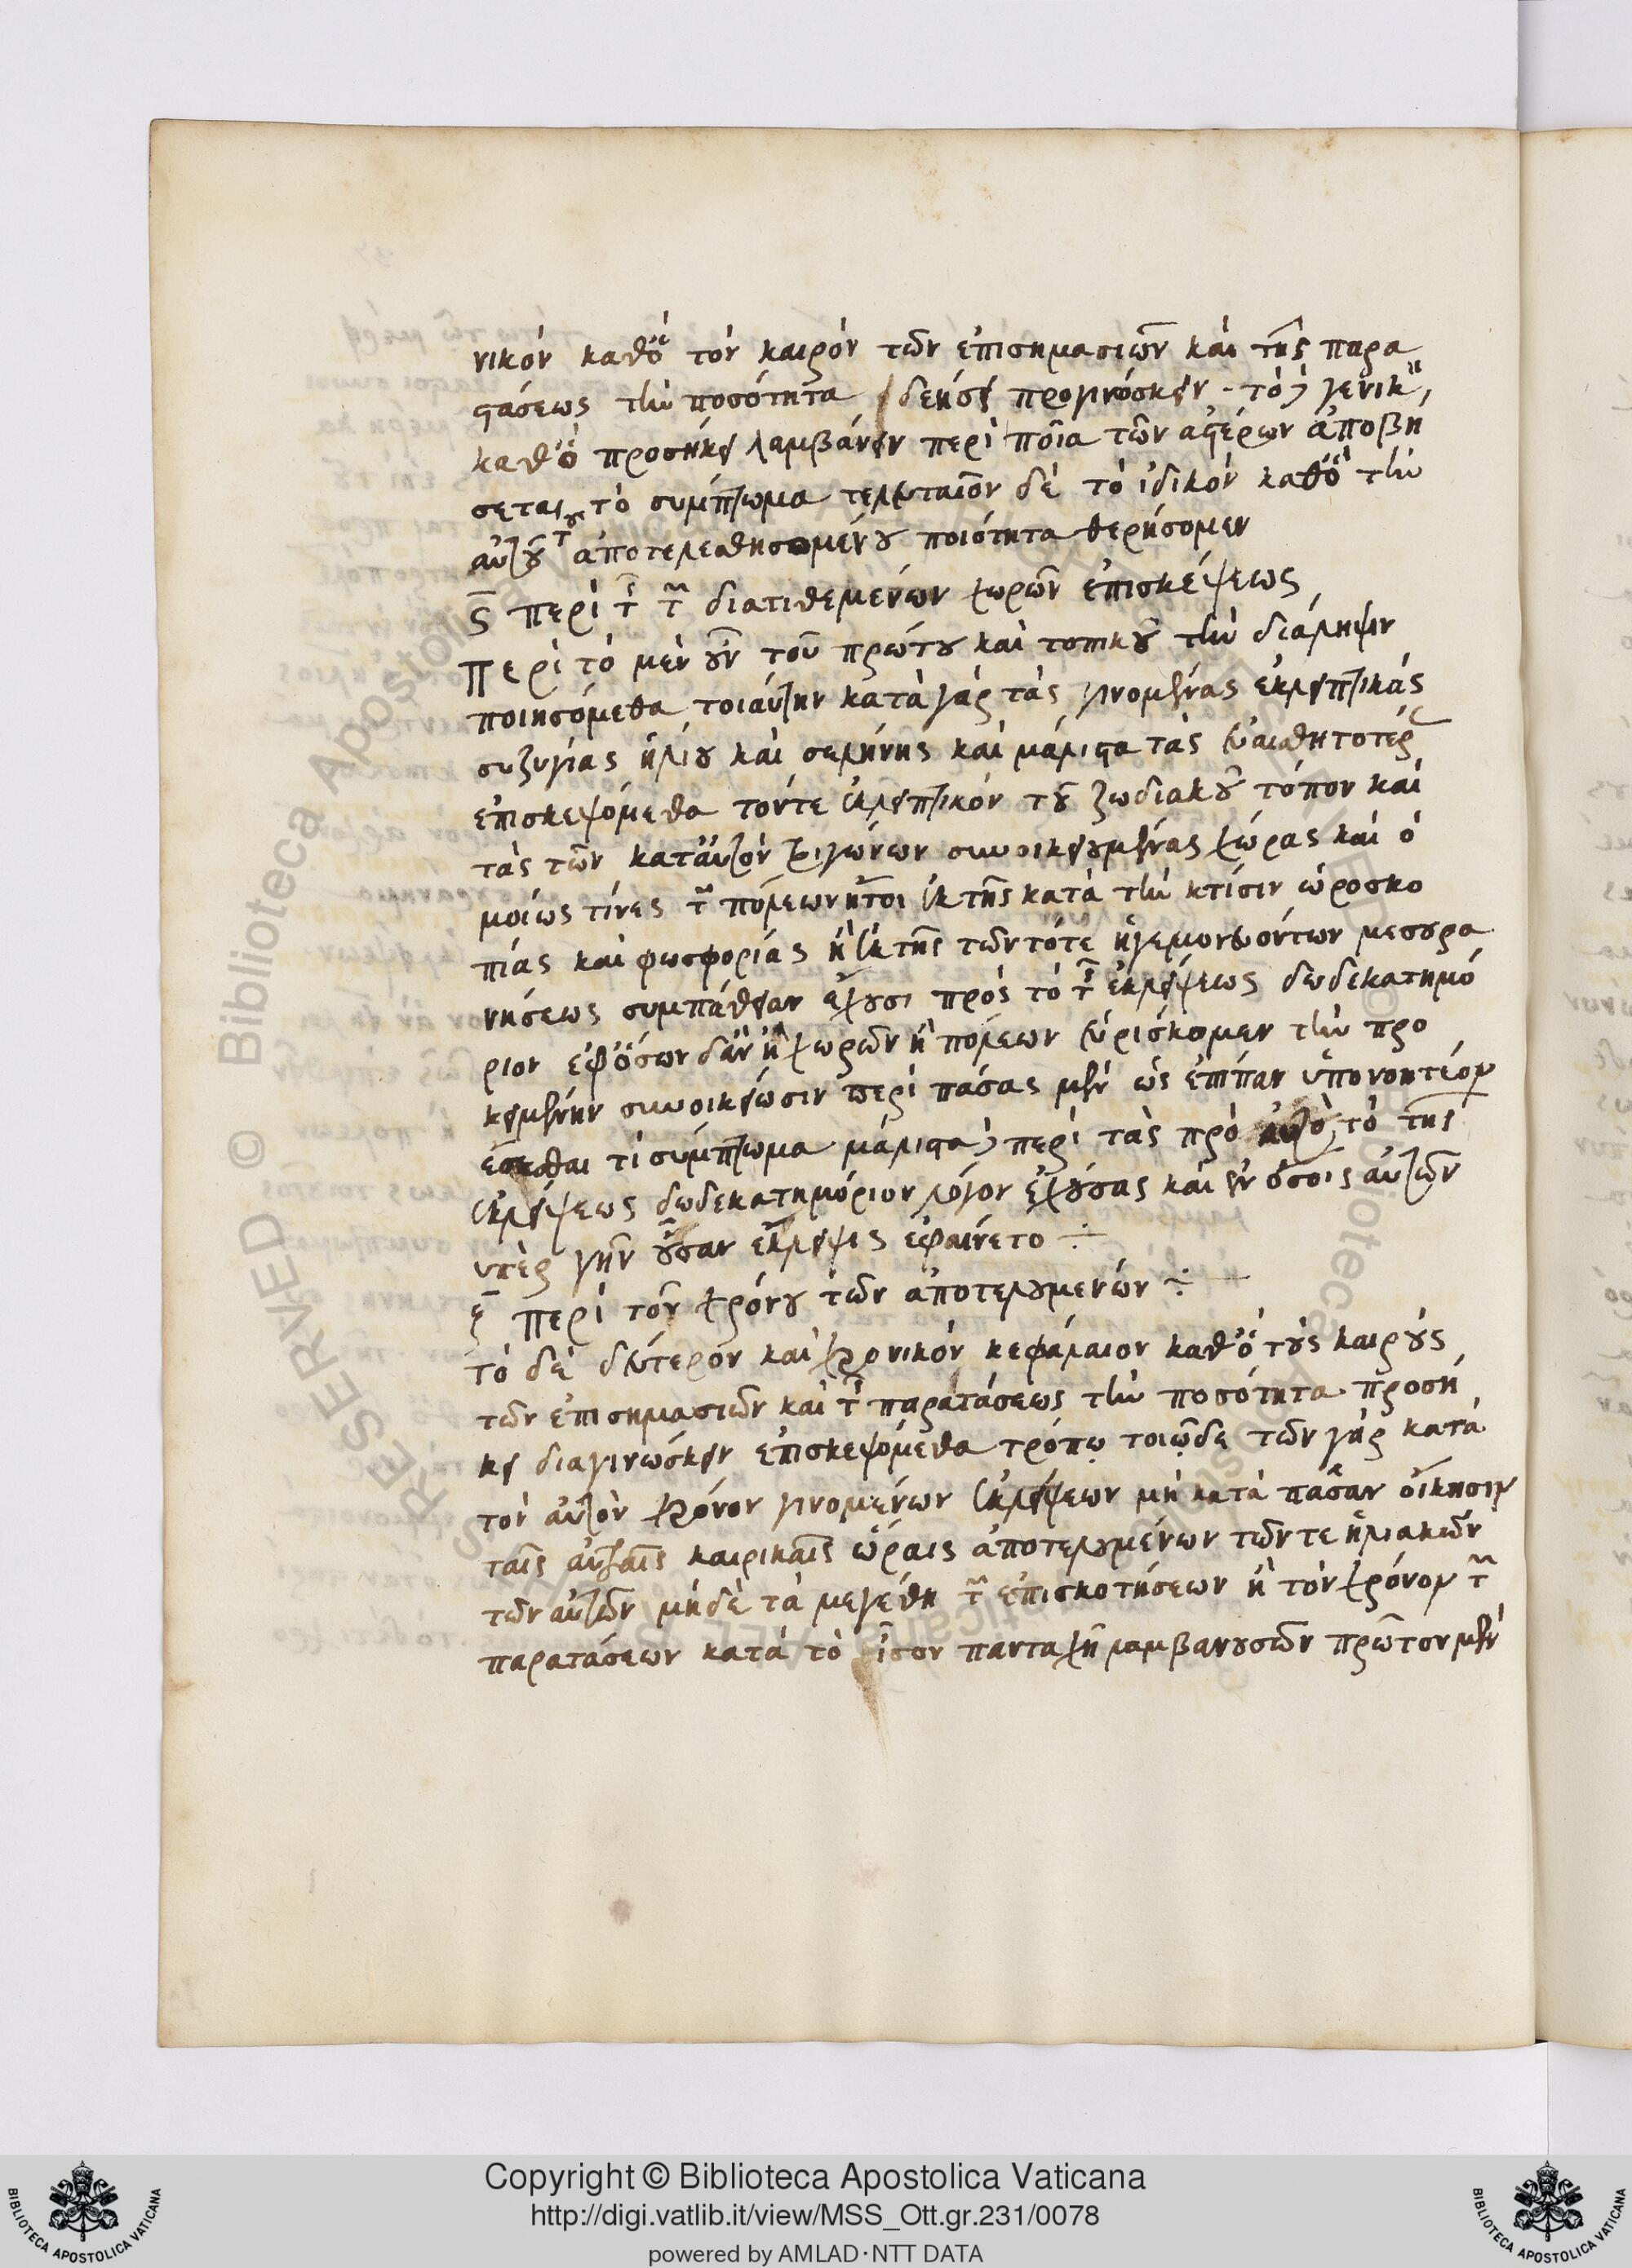 νικόν καθ' ὃ τὸν καιρὸν τῶν ἐπισημασιῶν καὶ τῆς παρα
στάσεως τὴν ποσότητα δεήσει προγινώσκειν· τὸ δὲ γενικὸν,
καθ' ὃ προσήκει λαμβάνειν περὶ ποῖα τῶν ἀστέρων ἀποβή
σεται τὸ σύμπτωμα τελευταῖον δὲ τὸ ἰδικὸν καθ' ὃ τὴν
αὐτοῦ τοῦ ἀποτελεσθησομένου ποιότητα θερήσομεν
ϛ περὶ τῆς τῶν διατιθεμένων χωρῶν ἐπισκέψεως
Περὶ τὸ μὲν οὖν τοῦ πρώτου καὶ τοπικοῦ τὴν διάληψιν
ποιησόμεθα τοιαύτην κατὰ γὰρ τὰς γινομένας ἐκλειπτικὰς
συζυγίας ἡλίου καὶ σελήνης καὶ μάλιστα τὰς εὐαισθητοτέρας
ἐπισκεψόμεθα τόν τε ἐκλειπτικὸν τοῦ ζωδιακοῦ τόπον καὶ
τὰς τῶν κατ' αὐτὸν τριγώνων συνοικειουμένας χώρας καὶ ὁ
μοίως τίνες τῶν πόλεων ἤτοι ἐκ τῆς κατὰ τὴν κτίσιν ὡροσκο
πίας καὶ φωσφορίας ἢ ἐκ τῆς τῶν τότε ἡγεμονευόντων μεσουρα
νήσεως συμπάθειαν ἔχουσι πρὸς τὸ τῆς ἐκλείψεως δωδεκατημό
ριον ἐφ' ὅσων δ' ἂν ἢ χωρῶν ἢ πόλεων εὑρίσκομεν τὴν προ
κειμένην συνοικείωσιν περὶ πάσας μὲν ὡς ἐπίπαν ὑπονοητέον
ἔσεσθαι τὶ σύμπτωμα μάλιστα δὲ περὶ τὰς πρὸ αὐτὸ τὸ τῆς
ἐκλείψεως δωδεκατημόριον λόγον ἐχούσας καὶ ἐν ὅσοις αὐτῶν
ὑπὲρ γῆν οὖσαν ἔκλειψις ἐφαίνετο ÷
ζ περὶ τοῦ χρόνου τῶν ἀποτελουμένων ÷
τὸ δὲ δεύτερον καὶ χρονικὸν κεφάλαιον καθ' ὃ τοὺς καιροὺς
τῶν ἐπισημασιῶν καὶ τῆς παρατάσεως τὴν ποσότητα προσή
κει διαγινώσκειν ἐπισκεψόμεθα τρόπῳ τοιῷδε τῶν γὰρ κατὰ
τὸν αὐτὸν χρόνον γινομένων ἐκλείψεων μὴ κατὰ πᾶσαν οἴκησιν
ταῖς αὐταῖς καιρικαῖς ὥραις ἀποτελουμένων τῶν τε ἡλιακῶν
τῶν αὐτῶν μηδὲ τὰ μεγέθη τῶν ἐπισκοτήσεων ἢ τὸν χρόνον τῶν
παρατάσεων κατὰ τὸ ἴσον πανταχῆ λαμβανουσῶν πρῶτον μὲν
Copyright © Biblioteca Apostolica Vaticana
http://digi.vatlib.it/view/MSS_Ott.gr.231/0078
powered by AMLAD·NTT DATA
BIBLIOTECA APOSTOLICA VATICANA
BIBLIOTECA APOSTOLICA VATICANA